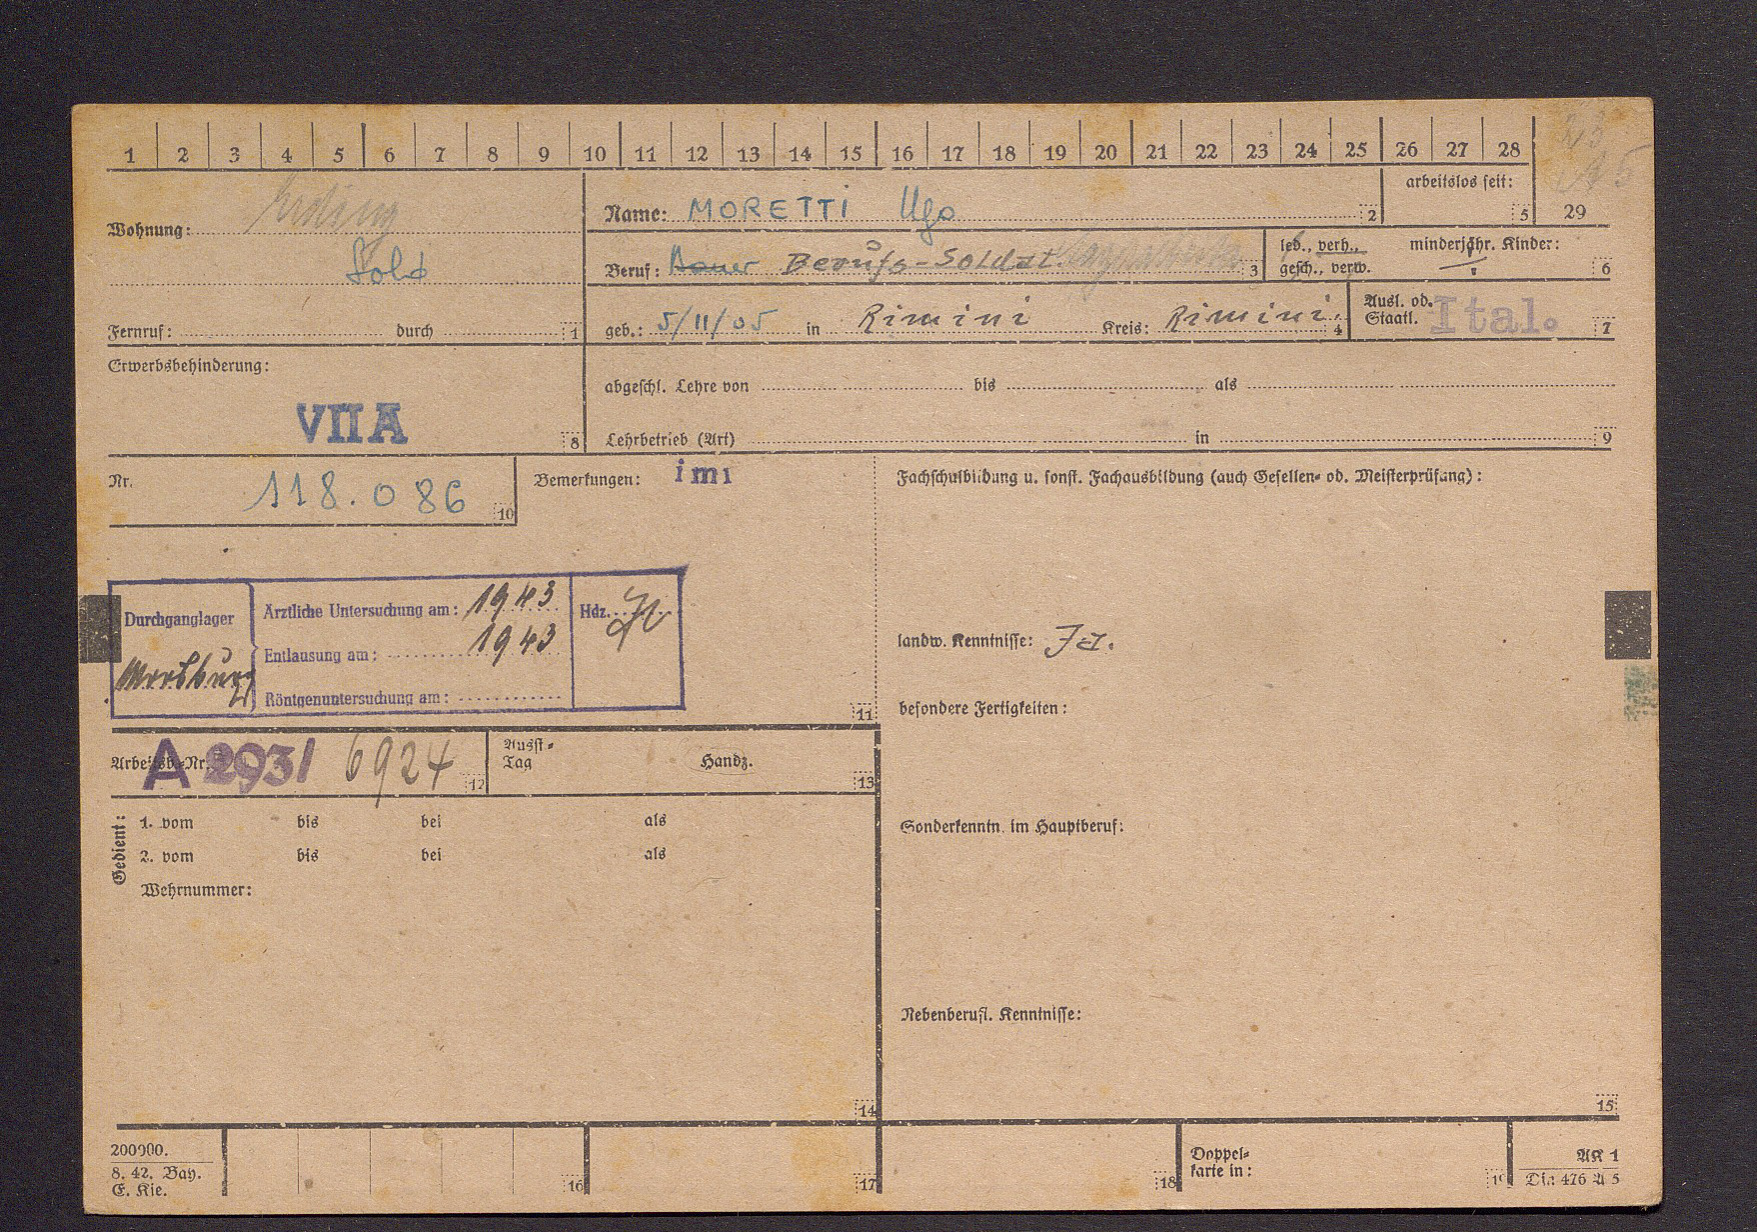 1 2 3 4 5 6 7 8 9 10 11 12 13 14 15 16 17 18 19 20 21 22 23 24 25 26 27 28
29
Wohnung: Erding
Sold
Fernruf: durch 1
Name: MORETTI Ugo 2
arbeitslos seit: 5
Beruf: Bauer Berufs-Soldat. 3
led., verh., gesch., verw.
minderjähr. Kinder: 6
geb.: 5/11/05 in Rimini Kreis: Rimini. 4
Ausl. od. Staatl. Ital. 7
Erwerbsbehinderung:
VII A 8
abgeschl. Lehre von bis als
Lehrbetrieb (Art) in 9
Nr. 118.086 10
Bemerkungen: imi
Fachschulbildung u. sonst. Fachausbildung (auch Gesellen- od. Meisterprüfung):
Durchganglager
Ärztliche Untersuchung am: 1943
Hdz.
Entlausung am: 1943
Röntgenuntersuchung am:
11
landw. Kenntnisse: Ja.
besondere Fertigkeiten:
Arbeitsb.-Nr. A 293/ 6924 12
Ausst-Tag Handz. 13
Gedient:
1. vom bis bei als
2. vom bis bei als
Wehrnummer:
14
Sonderkenntn. im Hauptberuf:
Nebenberufl. Kenntnisse:
15
200000.
8. 42. Bay.
E. Kie.
16 17 18
Doppel-
karte in: 19
AK 1
Din 476 A 5